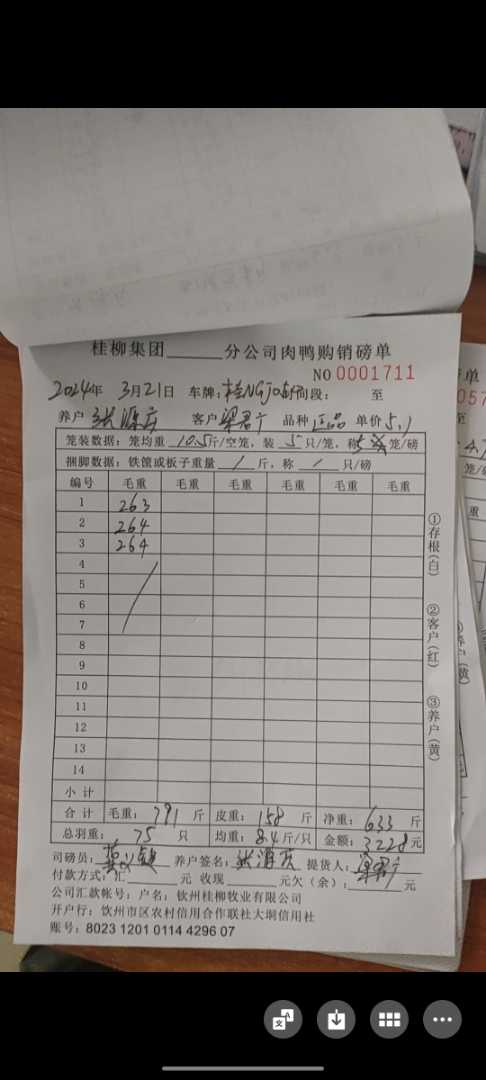 桂柳集团______分公司肉鸭购销磅单
NO 0001711
2024年 3月21日 车牌: 时间段: 至
养户 客户 品种 正品 单价 5.1
笼装数据: 笼均重 10.5斤/空笼, 装 5 只/笼, 称 5 笼/磅
捆脚数据: 铁筐或板子重量 / 斤, 称 / 只/磅
编号 毛重 毛重 毛重 毛重 毛重 毛重
1 263
2 264
3 264
4
5
6
7
8
9
10
11
12
13
14
小计
合计 毛重: 791 斤 皮重: 158 斤 净重: 633 斤
总羽重: 75 只 均重: 8.4 斤/只 金额: 3228元
司磅员: 养户签名: 提货人:
付款方式: 汇______元 收现______元欠(余):______元
公司汇款帐号: 户名: 钦州桂柳牧业有限公司
开户行: 钦州市区农村信用合作联社大垌信用社
账号: 8023 1201 0114 4296 07
①存根(白)
②客户(红)
③养户(黄)